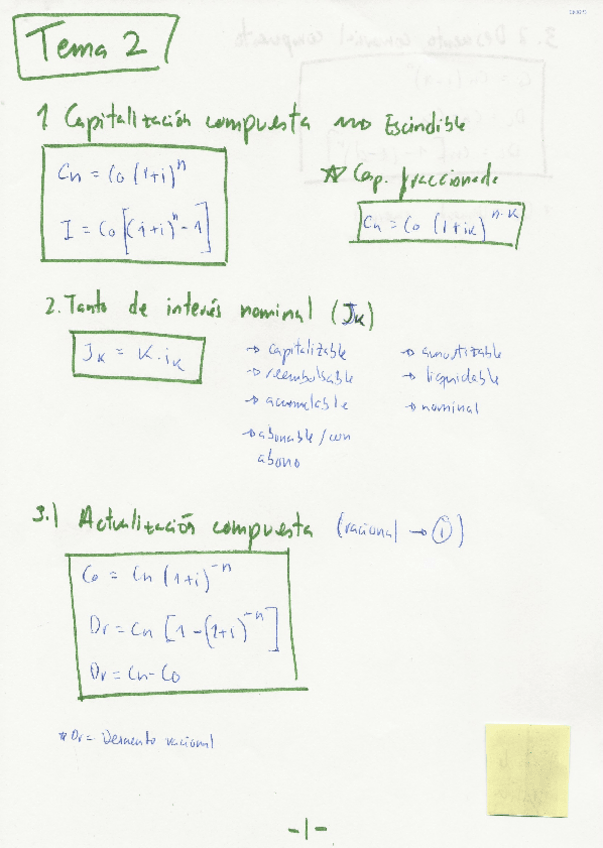 Tema 2
1 Capitalización compuesta no Escindible
Cn = Co (1+i)^n
I = Co [(1+i)^n - 1]
☆ Cap. fraccionada
Cn = Co (1+ik)^n·k
2. Tanto de interés nominal (Jk)
Jk = K · ik
→ capitalizable
→ reembolsable
→ acumulable
→ abonable / con
abono
→ amortizable
→ liquidable
→ nominal
3.1 Actualización compuesta (racional → i)
Co = Cn (1+i)^-n
Dr = Cn [1 - (1+i)^-n]
Dr = Cn - Co
* Dr = Descuento racional
-1-